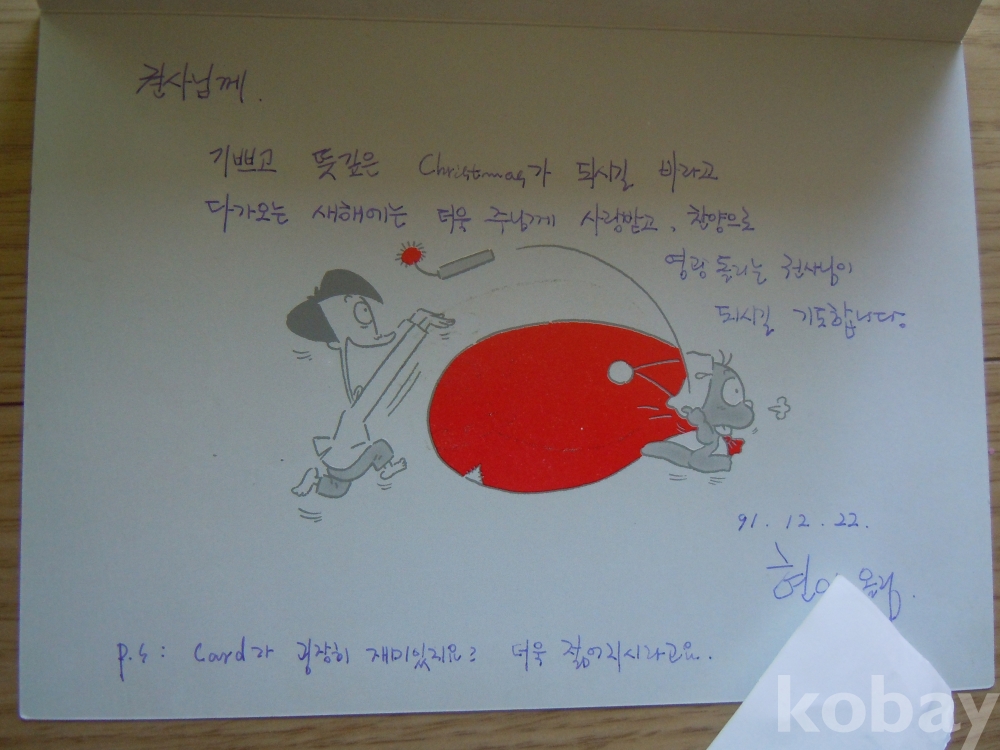 권사님께.
기쁘고 뜻깊은 Christmas가 되시길 바라고
다가오는 새해에는 더욱 주님께 사랑받고, 찬양으로
영광 돌리는 권사님이
되시길 기도합니다.
91. 12. 22.
올림.
P.S: Card가 굉장히 재미있지요? 더욱 젊어지시라고요.
kobay